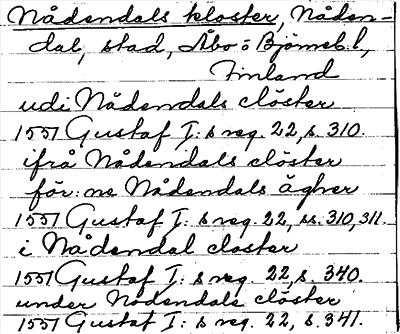 Nådendals kloster, Nåden-
dal, stad, Åbo o Björneb. l,
Finland
udi Nådendals clöster
1551 Gustaf I:s reg. 22, s. 310.
ifrå Nådendals clöster
för:ne Nådendals ägher
1551 Gustaf I:s reg. 22, ss. 310, 311.
i Nådendal closter
1551 Gustaf I:s reg. 22, s. 340.
under Nodendals clöster
1551 Gustaf I:s reg. 22, s. 341.